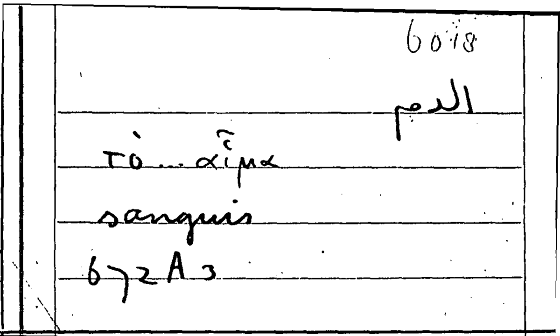 6018
الدم
τὸ... αἷμα
sanguis
672A3